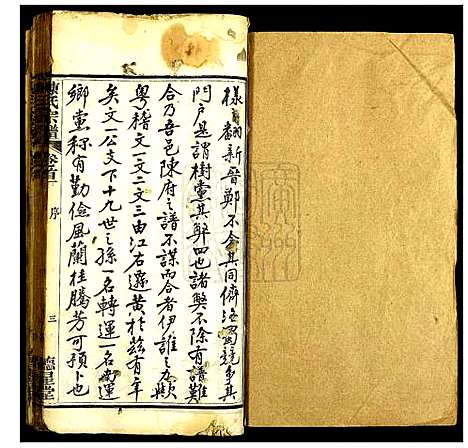 樣翻新晉鄭不合其同儕
門戶是謂樹黨其弊四也諸弊不除有譜難
合乃吾邑陳府之譜不謀而合者伊誰之力歟
粵稽文一文二文三由江右遷黃於茲有年
矣文一公文下十九世之孫一名轉運一名
運
鄉黨稱有勤儉風蘭桂騰芳可預卜也
陳氏宗譜
卷首
序
三
德星堂